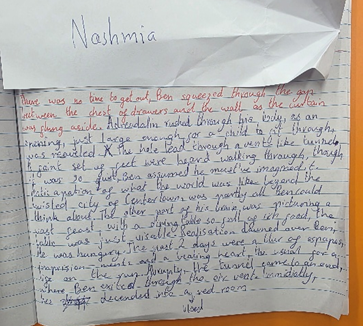 Nashmia
There was no time to get out, Ben squeezed through the gap
between the chest of drawers and the wall as the curtain
was flung aside. Adrendalin rushed through his body, as an
opening, just large enough for a child to fit through,
was revealed. The hole lead through a vents like tunnel.
A faint set of feet were heard walking through, though
it was so faint Ben assumed he must've imagined it.
of what the world was like beyond the
twisted city of was partly all Ben could
think about. The other part of his brain was picturing a
vast feast, with a dying table so full of food, the
table was just visible. Realisation dawned over Ben,
He was hungry. The past 2 days were a blur of
and a heart, the usual for a
on the run. Abruptly, the tunnel came to an end,
where Ben exited through the air vent. Immediatly,
he decended into a red room